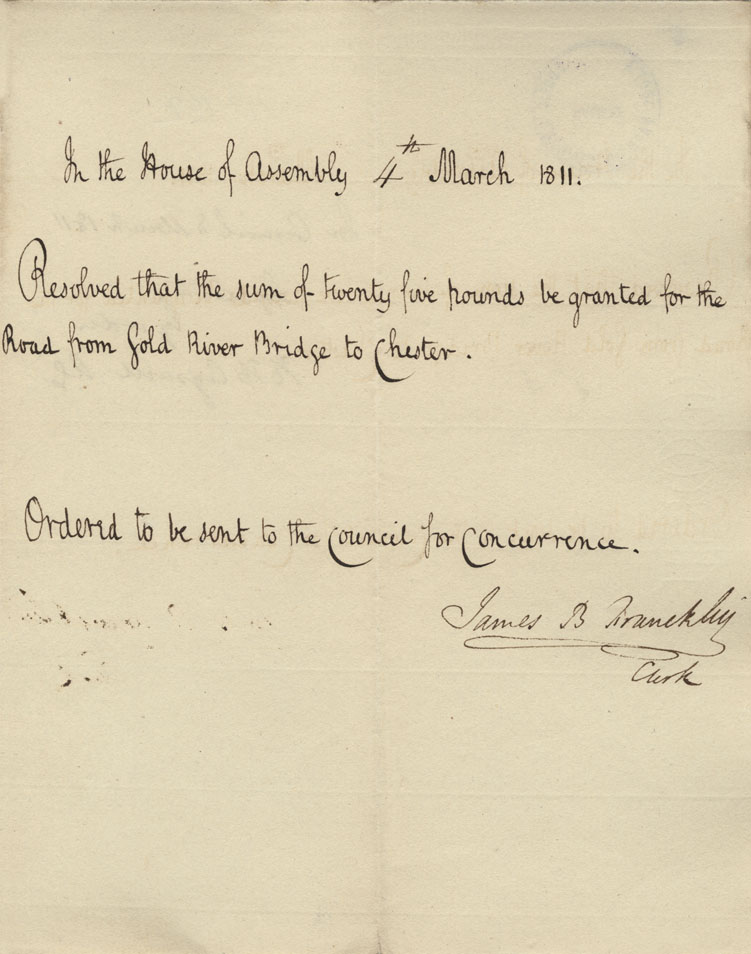 In the House of Assembly 4th March 1811.
Resolved that the sum of twenty five pounds be granted for the
Road from Gold River Bridge to Chester.
Ordered to be sent to the Council for Concurrence.
James B Francklin
Clerk